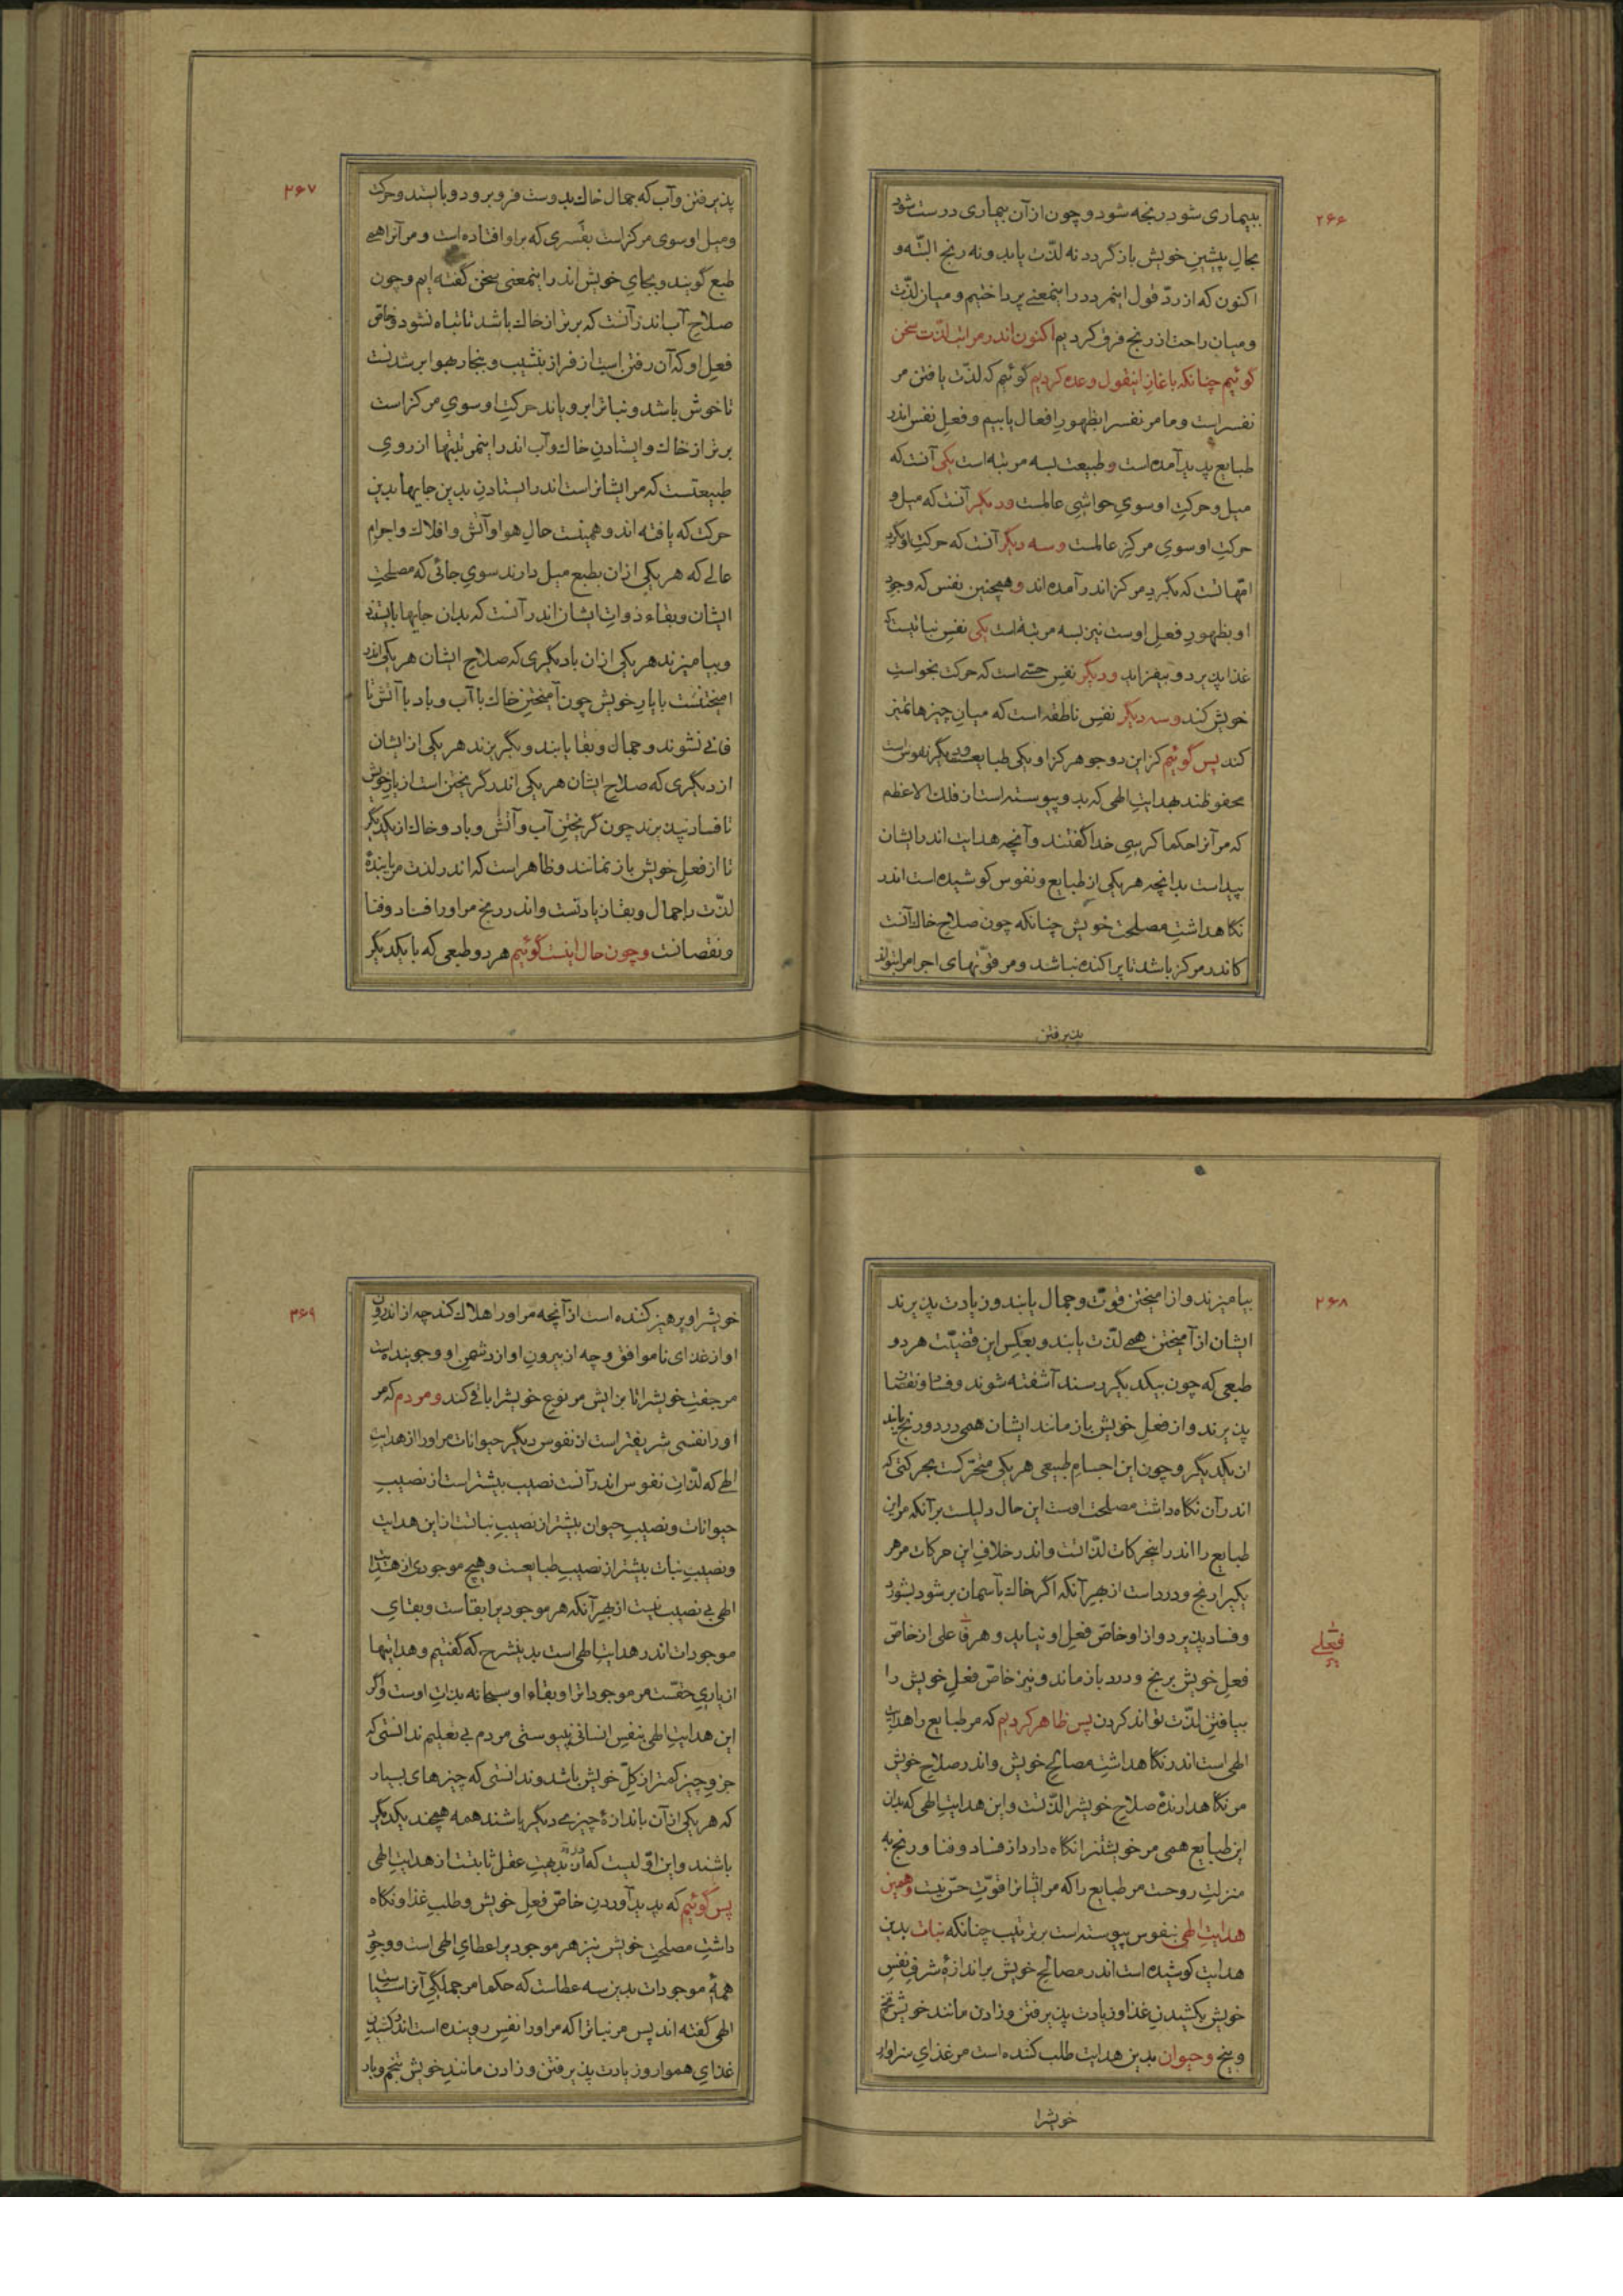 ۲۶۶
ببیماری شود رنجه شود و چون از آن بیماری درست شود
بحالِ پیشینِ خویش باز گردد نه لذّت یابد و نه رنج البتّه و
اکنون که از ردّ قول اینمرد درا ینمعنے پرداختیم و میان لذّت
ومیان راحت از رنج فرق کردیم اکنون اندر مراتب لذّت سخن
گوئیم چنانکه باغازِ اینقول وعده کردیم گوئیم که لذّت یافتن مر
نفسراست و ما مر نفسرا بظهورِ افعال یابیم و فعلِ نفس اندر
طبایع پدید آمده است و طبیعت بسه مرتبه است یکی آنست که
میل و حرکتِ او سویِ حواشیِ عالمست و دیگر آنست که میل و
حرکتِ او سویِ مرکزِ عالمست و سه دیگر آنست که حرکتِ او بگردِ
امّهاتست که بگردِ مرکز اندر آمده اند و همچنین نفس که وجودِ
او بظهورِ فعلِ اوست نیز بسه مرتبه است یکی نفسِ نباتیست که
غذا پذیرد و بیفزاید و دیگر نفسِ حسّے است که حرکت بخواستِ
خویش کند و سه دیگر نفسِ ناطقه است که میانِ چیزها تمیز
کند پس گوئیم کز این دو جوهر کز او یکی طبایعست و دیگر نفوس است
محفوظند بهدایتِ الهی که بدو پیوسته است از فلك الاعظم
که مر آنرا حکما کرسیِ خدا گفتند و آنچه هدایت اندر ایشان
پیداست بدانچه هر یکی از طبایع و نفوس کوشیده است اندر
نگاهداشتِ مصلحت خویش چنانکه چون صلاحِ خاك آنست
کاندر مرکز باشد تا پراکنده نباشد و مر قوّتهای اجرام را بتواند
پذیرفتن
۲۶۷
پذیرفتن و آب که جمال خاك بدوست فرو برود و باېستد و حرکت
ومیلِ او سوی مرکز است بقسری که بر او افتاده است و مر آنرا همے
طبع گویند و بجایِ خویش اندر اینمعنی سخن گفته ایم و چون
صلاحِ آب اندر آنست که برتر از خاك باشد تا تباه نشود و خاصّ
فعلِ او که آن رفتن است از فراز بنشیب و ببخار بهوا بر شدنست
تا خوش باشد و نباترا برویاند حرکتِ او سویِ مرکز است
برتر از خاك و ایستادنِ خاك و آب اندر اینمرتبتها از رویِ
طبیعتست که مر ایشانراست اندر ایستادن بدین جایها بدین
حرکت که یافته اند و همینست حالِ هوا و آتش و افلاك و اجرامِ
عالے که هر یکی از ان بطبع میل دارند سوی جائی که مصلحتِ
ایشان و بقاء ذواتِ ایشان اندر آنست که بدان جایها باېستند
و بیامیزند هر یکی از ان با دیگری که صلاحِ ایشان هر یکی اندر
امیختنست با یارِ خویش چون آمیختنِ خاك با آب و باد با آتش تا
فانے نشوند و جمال و بقا یابند و بگریزند هر یکی از ایشان
از دیگری که صلاحِ ایشان هر یکی اندر گریختن است از یارِ خویش
تا فساد نپذیرند چون گریختنِ آب و آتش و باد و خاك از یکدیگر
تا از فعلِ خویش باز نمانند و ظاهر است که اندر لذت مر یابندۀ
لذّت را جمال و بقا و زیادتست و اندر رنج مر او را فساد و فنا
و نقصانست و چون حال اینست گوئیم هر دو طبعی که با یکدیگر
۲۶۸
بیامیزند و از امیختن قوّت و جمال یابند و زیادت پذیرند
ایشان از آمیختن همے لذّت یابند و بعکسِ این قضیّت هر دو
طبعی که چون بیکدیگر رسند آشفته شوند و فساد و نقصان
پذیرند و از فعلِ خویش باز مانند ایشان همی درد و رنج یابند
از یکدیگر و چون این اجسامِ طبیعی هر یکی متحرّکست بحرکتی که
اندر آن نگاه داشت مصلحت اوست این حال دلیلست بر آنکه مر این
طبایع را اندر اینحرکات لذّاتست و اندر خلافِ این حرکات مر هر
یکیرا رنج و درد است از بهرِ آنکه اگر خاك بآسمان بر شود بشورد
و فساد پذیرد و از او خاصّ فعلِ او نیاید و هر فاعلی از خاصّ
فعلِ خویش برنج و درد باز ماند و نیز خاصّ فعلِ خویش را
بیافتنِ لذّت تواند کردن پس ظاهر کردیم که مر طبایع را هدایتِ
الهی است اندر نگاهداشتِ مصالحِ خویش و اندر صلاحِ خویش
مر نگاهدارندۀ صلاحِ خویشرا لذّتست و این هدایتِ الهی که بدان
این طبایع همی مر خویشتنرا نگاه دارد از فساد و فنا و رنج به
منزلتِ روحست مر طبایع را که مر اثباترا قوّتِ حسّ نیست و همین
هدایتِ الهی بنفوس پیوسته است بر ترتیب چنانکه نبات بدین
هدایت کوشیده است اندر مصالحِ خویش بر اندازۀ شرفِ نفسِ
خویش بکشیدنِ غذا و زیادت پذیرفتن و زادن مانند خویش بتخم
و بیخ و حیوان بدین هدایت طلب کننده است مر غذایِ سزاوارِ
خویشرا
۲۶۹
خویشرا و پرهیز کننده است از آنچه مر او را هلاك کند چه از اندرونِ
او از غذای ناموافق و چه از بیرونِ او از دشمنِ او و جوینده است
مر جفتِ خویشرا تا بزایش مر نوعِ خویشرا باقی کند و مردم که مر
او را نفسی شریفتر است از نفوس دیگر حیوانات مر او را از هدایتِ
الهی که لذّاتِ نفوس اندر آنست نصیب بیشتر است از نصیبِ
حیوانات و نصیبِ حیوان بیشتر از نصیبِ نباتست از این هدایت
و نصیبِ نبات بیشتر از نصیبِ طبایعست و هیچ موجودی از هدایتِ
الهی بی نصیب نیست از بهرِ آنکه هر موجودیرا بقاست و بقایِ
موجودات اندر هدایتِ الهی است بدینشرح که گفتیم و هدایتها
از باریِ حقّست مر موجوداترا و بقاء او سبحانه بذاتِ اوست و اگر
این هدایتِ الهی بنفسِ انسانی نپیوستی مردم بی تعلیم ندانستی که
جزوِ چیز کمتر از کلّ خویش باشد و ندانستی که چیزهای بسیار
که هر یکی از آن باندازۀ چیزے دیگر باشند همه همچند یکدیگر
باشند و این اوّلیست که اندر بدیهتِ عقل ثابتست از هدایتِ الهی
پس گوئیم که پدید آوردنِ خاصّ فعلِ خویش و طلبِ غذا و نگاه
داشتِ مصلحتِ خویش نیز هر موجودیرا عطایِ الهی است و وجودِ
همۀ موجودات بدین سه عطاست که حکما مر جملگیِ آنرا سیاستِ
الهی گفته اند پس مر نباترا که مر او را نفسِ روینده است اندر کشیدنِ
غذایِ هموار و زیادت پذیرفتن و زادن مانندِ خویش بتخم و بار